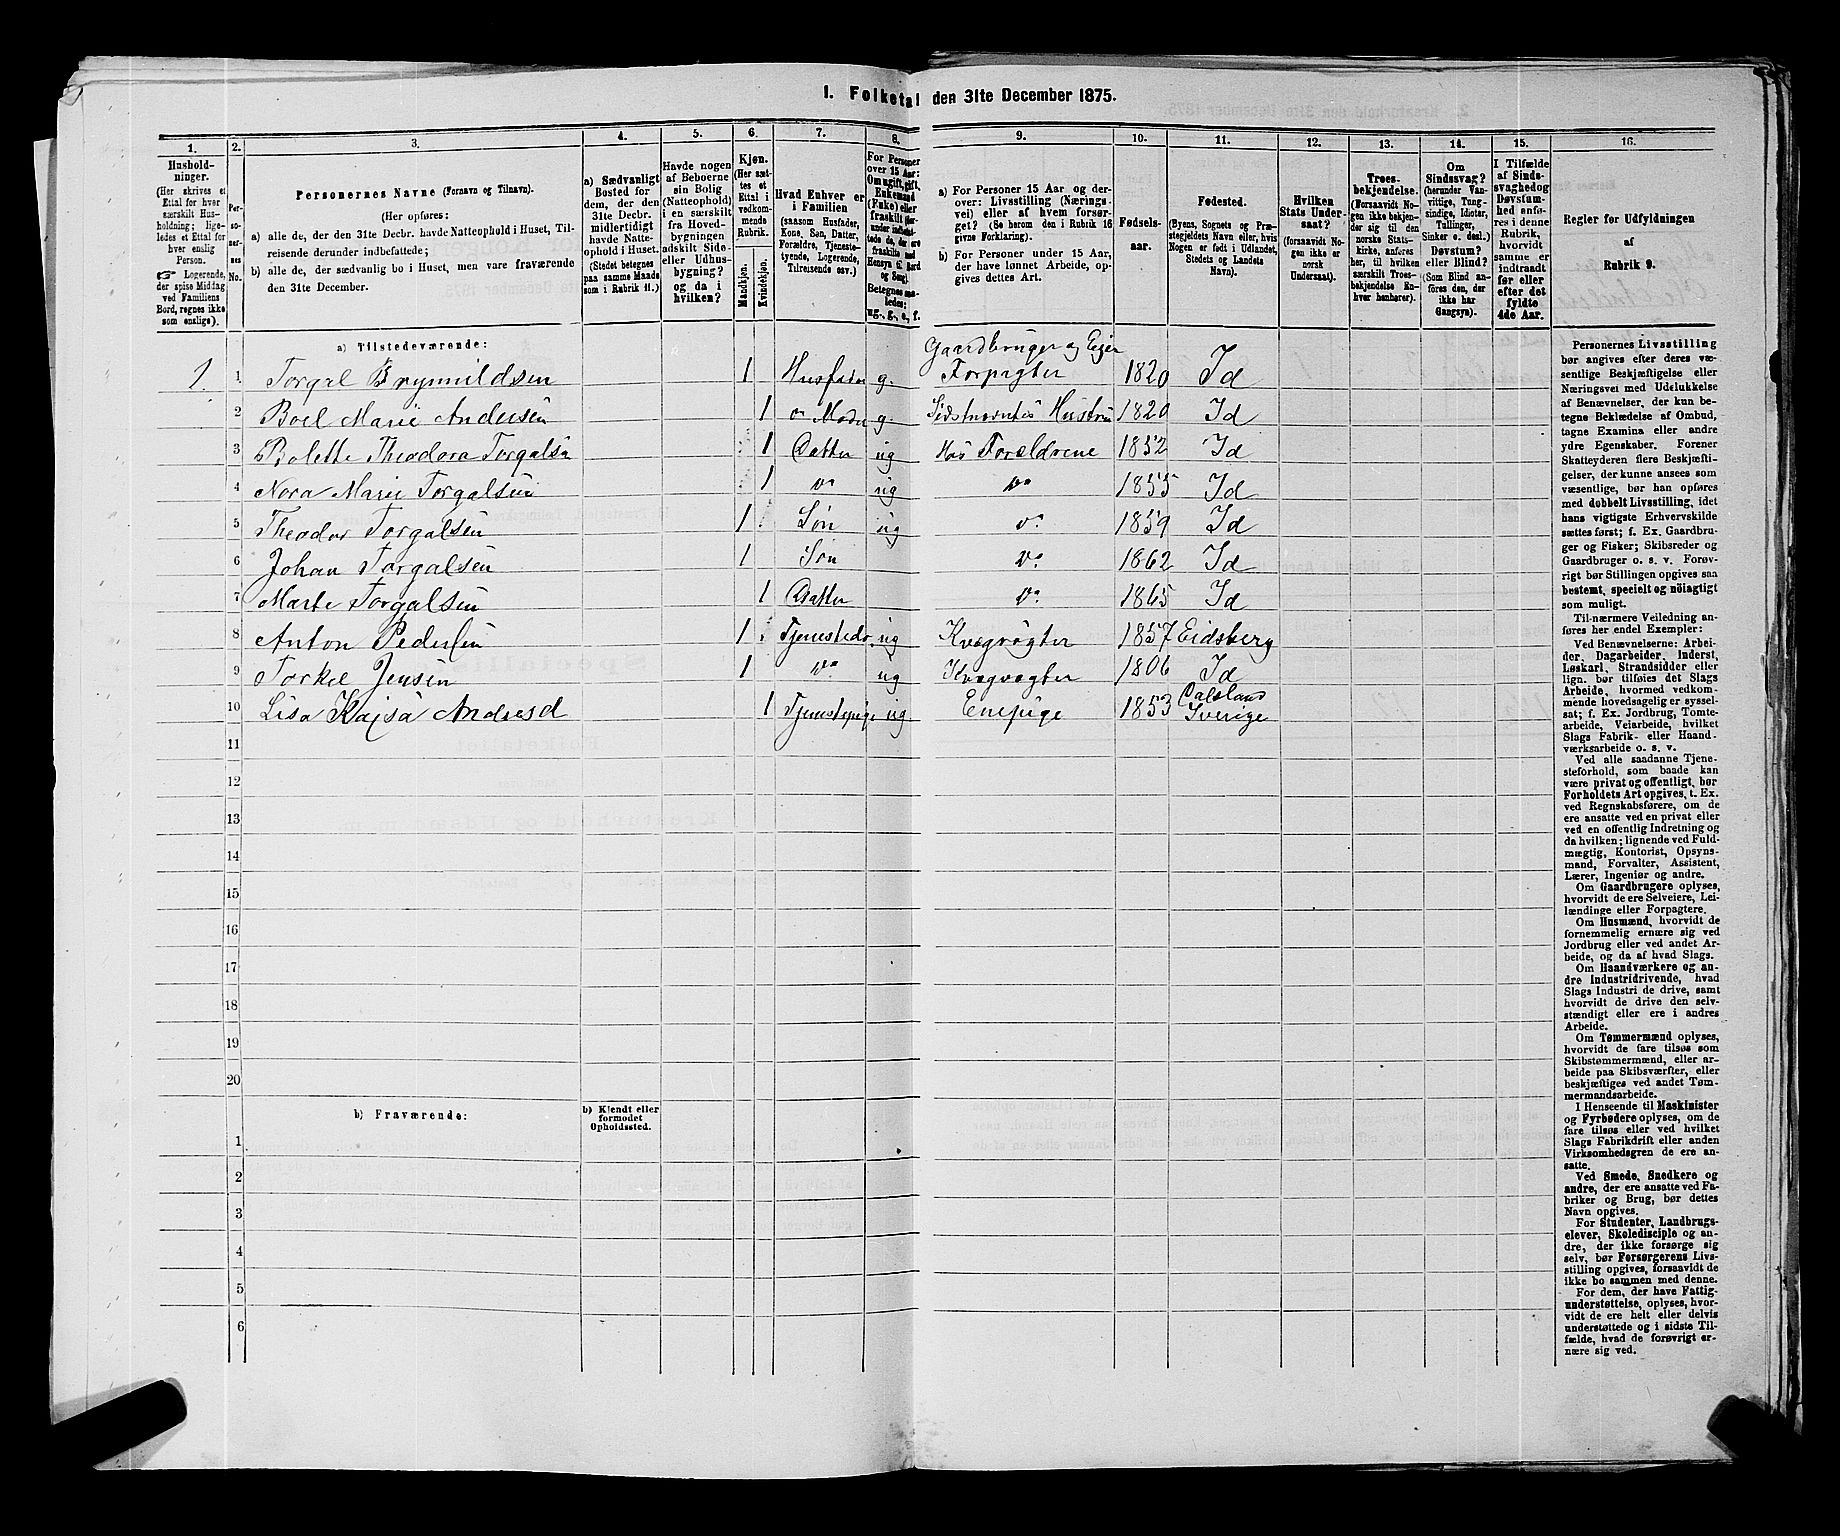 I. Folketal den 31te December 1875.
1. 2. 3. 4. 5. 6. 7. 8. 9. 10. 11. 12. 13. 14. 15. 16.
Hushold-
ninger.
(Her skrives et
Ettal for hver
særskilt Hus-
holdning; lige-
ledes et Ettal for
hver enslig
Person.
☞ Logerende,
der spise Middag
ved Familiens
Bord, regnes ikke
som enslige).
Per-
soner-
nes
No.
Personernes Navne (Fornavn og Tilnavn).
(Her opføres:
a) alle de, der den 31te Decbr. havde Natteophold i Huset, Til-
reisende derunder indbefattede;
b) alle de, der sædvanlig bo i Huset, men vare fraværende
den 31te December.
a) Sædvanligt
Bosted for
dem, der den
31te Decbr.
midlertidigt
havde Natte-
ophold i Huset.
(Stedet betegnes
paa samme Maade
som i Rubrik 11.)
Havde nogen
af Beboerne
sin Bolig
(Natteophold)
i en særskilt
fra Hoved-
bygningen
adskilt Side-
eller Udhus-
bygning?
og da i
hvilken?
Kjøn.
(Her sæt-
tes et
Ettal i
vedkom-
mende
Rubrik.
Mandkjøn.
Kvindekjøn.
Hvad Enhver er
i Familien
(saasom Husfader,
Kone, Søn, Datter,
Forældre, Tjeneste-
tyende, Logerende,
Tilreisende osv.)
For Personer
over 15 Aar:
Om ugift, gift,
Enkemand
(Enke) eller
fraskilt
ug., g., e., f.
a) For Personer 15 Aar og der-
over: Livsstilling (Nærings-
vei) eller af hvem forsør-
get? (Se herom den i Rubrik 16
givne Forklaring).
b) For Personer under 15 Aar,
der have lønnet Arbeide, op-
gives dettes Art.
Fødsels-
aar.
Fødested.
(Byens, Sognets og Præ-
stegjeldets Navn eller, hvis
Nogen er født i Udlandet,
Stedets og Landets
Navn).
Hvilken
Stats Under-
saat?
(forsaavidt No-
gen ikke er
norsk
Undersaat).
Troes-
bekjendelse.
(Forsaavidt No-
gen ikke bekjen-
der sig til den
norske Stats-
kirke, anføres
her, til hvilken
særskilt Troes-
bekjendelse En-
hver henhører).
Om
Sindssvag?
(herunder Van-
vittige, Tung-
sindige, Idioter,
Tullinger,
Sinker o. desl.)
Døvstum?
eller Blind?
(Som Blind an-
føres den, der
ikke har
Gangsyn).
I Tilfælde
af Sinds-
svaghed og
Døvstum-
hed anfø-
res i denne
Rubrik,
hvorvidt
samme er
indtraadt
før eller
efter det
fyldte
4de Aar.
Regler for Udfyldningen
af
Rubrik 9.
a) Tilstedeværende:
Gaardbruger og Eier
1 1 Torgal Brynnildsen 1 Husfader g. Forpagter 1820 Id
2 Boel Marie Andersen 1 Moder g. Sidstnævntes Hustru 1820 Id
3 Bolette Theodora Torgalsn 1 Datter ug Hos Forældrene 1852 Id
4 Nora Marie Torgalsen 1 do ug do 1855 Id
5 Theodor Torgalsen 1 Søn ug do 1859 Id
6 Johan Torgalsen 1 Søn do 1862 Id
7 Marte Torgalsen 1 Datter do 1865 Id
8 Anton Pedersen 1 Tjenestedr. ug Kvægrøgter 1857 Eidsberg
9 Torkel Jensen 1 do ug Kvægvogter 1806 Id
10 Lisa Kajsa Andresd 1 Tjenestepige ug. Enepige 1853 Dalsland Sverige
11
12
13
14
15
16
17
18
19
20
b) Fraværende:
b) Kjendt eller
formodet
Opholdssted.
1
2
3
4
5
6
Personernes Livsstilling
bør angives efter deres væ-
sentlige Beskjæftigelse eller
Næringsvei med Udelukkelse
af Benævnelser, der kun be-
tegne Beklædelse af Ombud,
tagne Examina eller andre
ydre Egenskaber. Forener
Skatteyderen flere Beskjæfti-
gelser, der kunne ansees som
væsentlige, bør han opføres
med dobbelt Livsstilling, idet
hans vigtigste Erhvervskilde
sættes først; f. Ex. Gaardbru-
ger og Fisker; Skibsreder og
Gaardbruger o. s. v. Forøv-
rigt bør Stillingen opgives saa
bestemt, specielt og nøiagtigt
som muligt.
Til nærmere Veiledning an-
føres her endel Exempler:
Ved Benævnelserne: Arbei-
der, Dagarbeider, Inderst,
Løskarl, Strandsidder eller
lign. bør tilføies det Slags
Arbeide, hvormed vedkom-
mende hovedsagelig er syssel-
sat; f. Ex. Jordbrug, Tomte-
arbeide, Veiarbeide, hvilket
Slags Fabrik- eller Haand-
værksarbeide o. s. v.
Ved alle saadanne Tjene-
steforhold, som baade kan
være privat og offentligt, bør
Forholdets Art opgives, t. Ex.
ved Regnskabsførere, om de
ere ansatte ved en privat eller
ved en offentlig Indretning og
da hvilken; lignende ved Fuld-
mægtig, Kontorist, Opsyns-
mand, Forvalter, Assistent,
Lærer, Ingeniør og andre.
Om Gaardbrugere oplyses,
hvorvidt de ere Selveiere, Lei-
lændinge eller Forpagtere.
Om Husmænd, hvorvidt de
fornemmelig ernære sig ved
Jordbrug eller ved andet Ar-
beide, og da af hvad Slags.
Om Haandværkere og an-
dre Industridrivende, hvad
Slags Industri de drive, samt
hvorvidt de drive den selv-
stændigt eller ere i andres
Arbeide.
Om Tømmermænd oplyses,
hvorvidt de fare tilsøs som
Skibstømmermænd, eller ar-
beide paa Skibsværfter, eller
beskjæftiges ved andet Tøm-
mermandsarbeide.
I Henseende til Maskinister
og Fyrbødere oplyses, om de
fare tilsøs eller ved hvilket
Slags Fabrikdrift eller anden
Virksomhedsgren de ere an-
satte.
Ved Smede, Snedkere og
andre, der ere ansatte ved Fa-
briker og Brug, bør dettes
Navn opgives.
For Studenter, Landbrugs-
elever, Skoledisciple og an-
dre, der ikke forsørge sig
selv, bør Forsørgerens Livs-
stilling opgives, forsaavidt de
ikke bo sammen med denne.
For dem, der have Fattig-
understøttelse, oplyses, hvor-
vidt de ere helt eller delvis
understøttede og i sidste Til-
fælde, hvad de forøvrigt er-
nære sig ved.